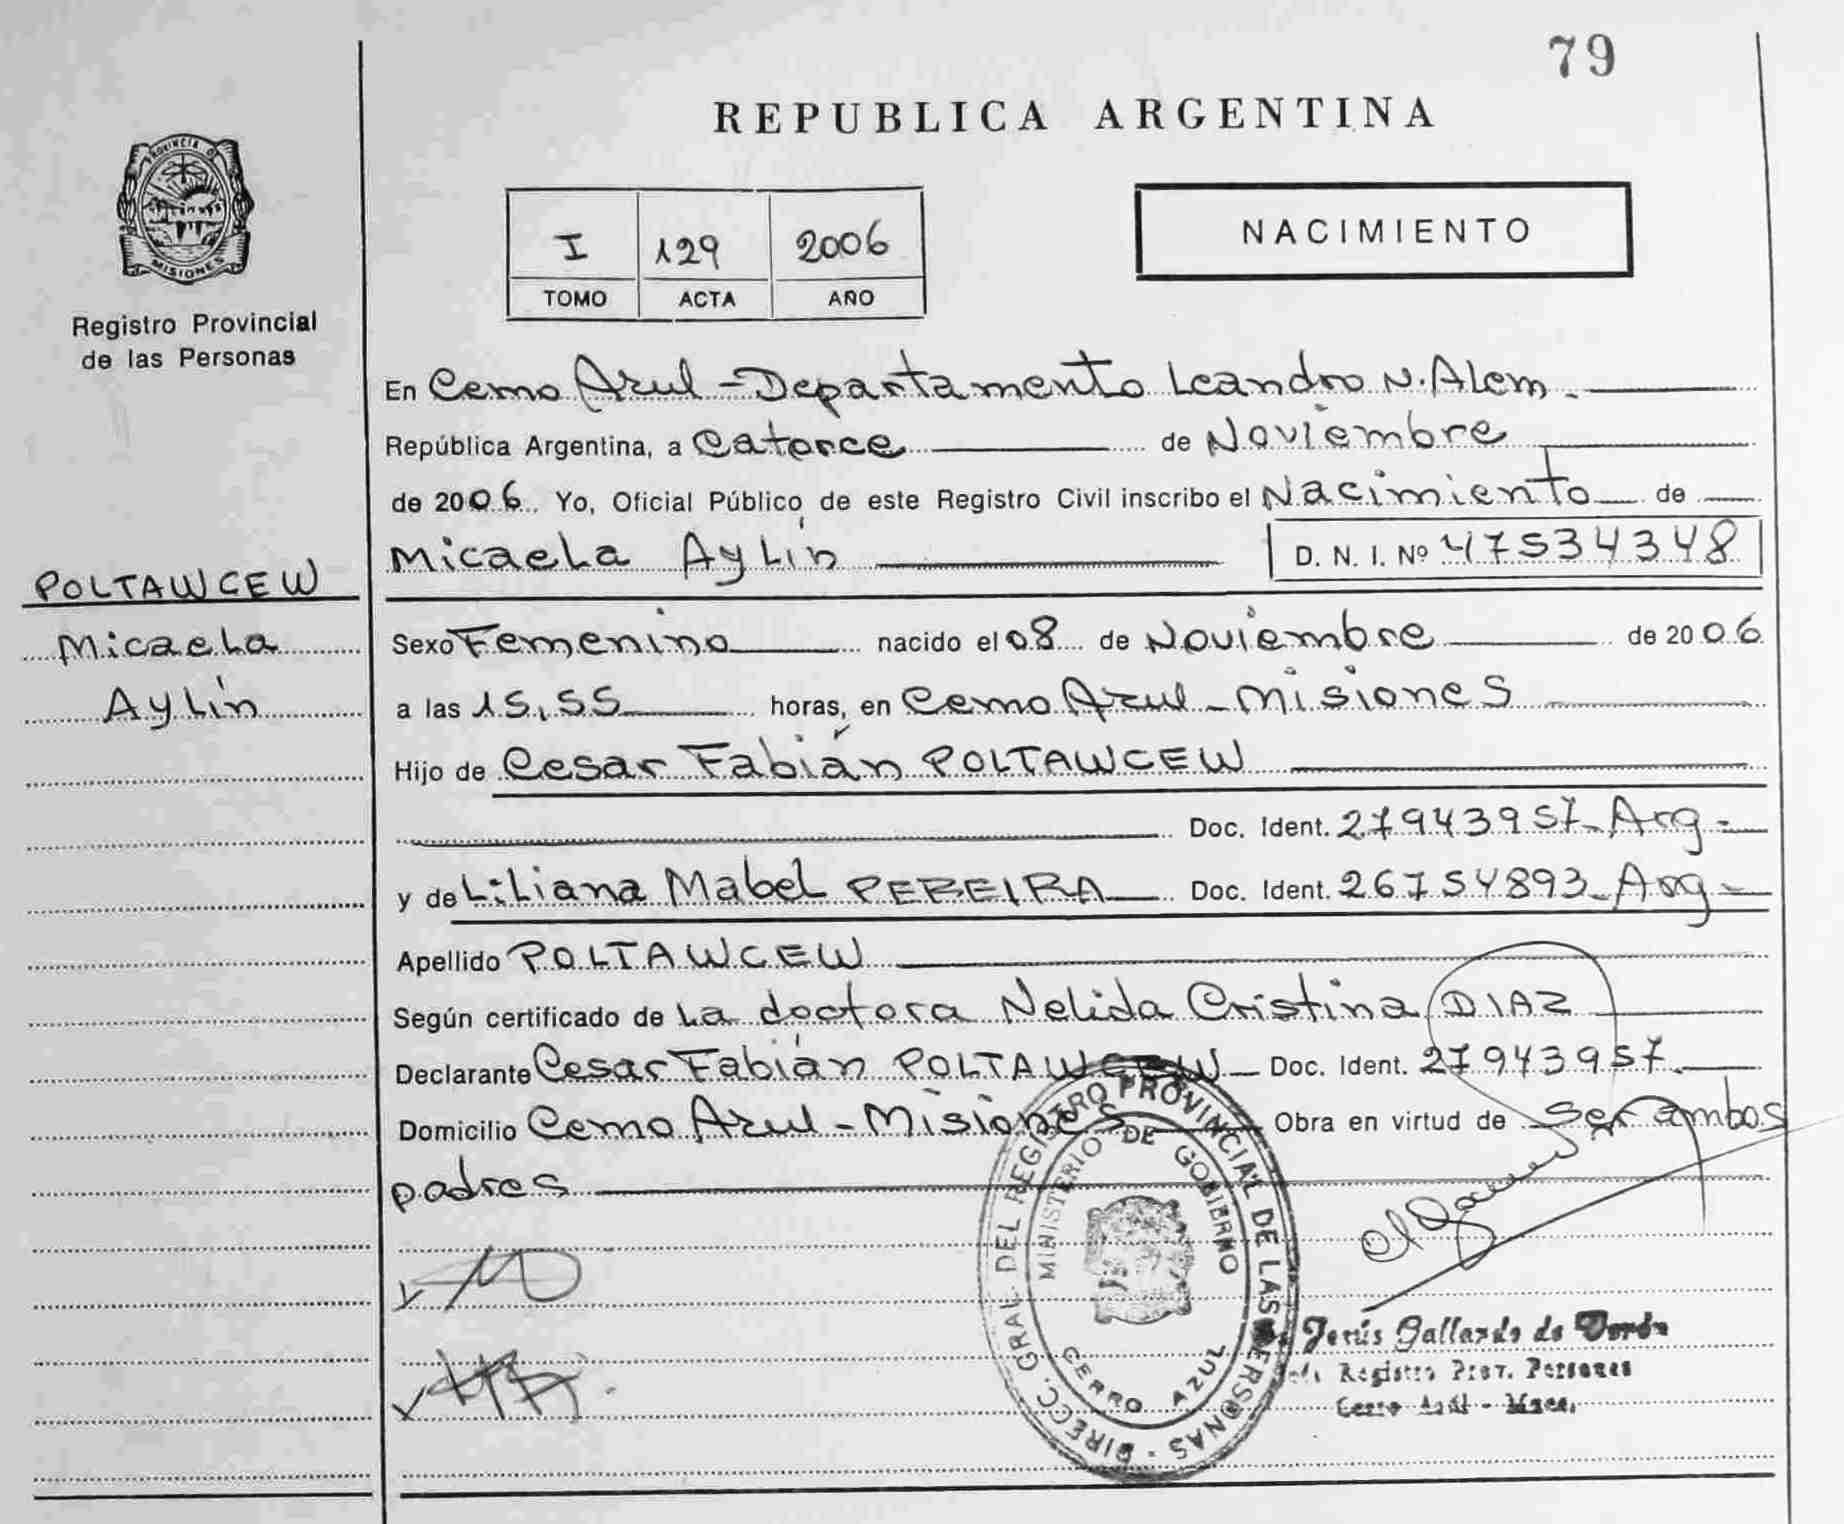 79
REPUBLICA ARGENTINA
PROVINCIA DE
MISIONES
Registro Provincial
de las Personas
I 129 2006
TOMO ACTA AÑO
NACIMIENTO
En Cerro Azul - Departamento Leandro N. Alem.
República Argentina, a Catorce de Noviembre
de 2006. Yo, Oficial Público de este Registro Civil inscribo el Nacimiento de
Micaela Aylín D. N. I. Nº 47534348
POLTAWCEW
Micaela
Aylín
Sexo Femenino nacido el 08 de Noviembre de 2006
a las 15,55 horas, en Cerro Azul - Misiones
Hijo de Cesar Fabián POLTAWCEW
Doc. Ident. 27943957 - Arg -
y de Liliana Mabel PEREIRA Doc. Ident. 26754893 - Arg -
Apellido POLTAWCEW
Según certificado de La doctora Nelida Cristina DIAZ
Declarante Cesar Fabián POLTAWCEW Doc. Ident. 27943957.
Domicilio Cerro Azul - Misiones Obra en virtud de ser ambos
padres
DIRECC. GRAL. DEL REGISTRO PROVINCIAL DE LAS PERSONAS
MINISTERIO DE GOBIERNO
CERRO AZUL
Jesús Gallardo de
Registro Prov. Personas
Cerro Azul - Mnes.